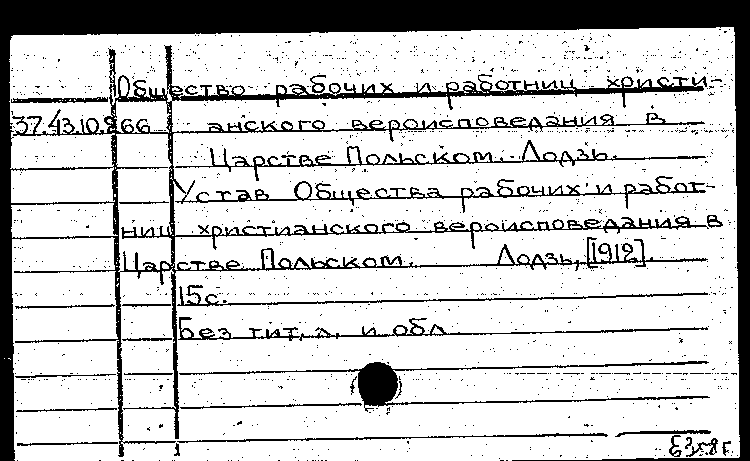 Общество рабочих и работниц христи-
37.43.10.866 анского вероисповедания в
Царстве Польском. Лодзь.
Устав Общества рабочих и работ-
ниц христианского вероисповедания в
Царстве Польском. Лодзь, [1912].
15с.
Без тит. л. и обл